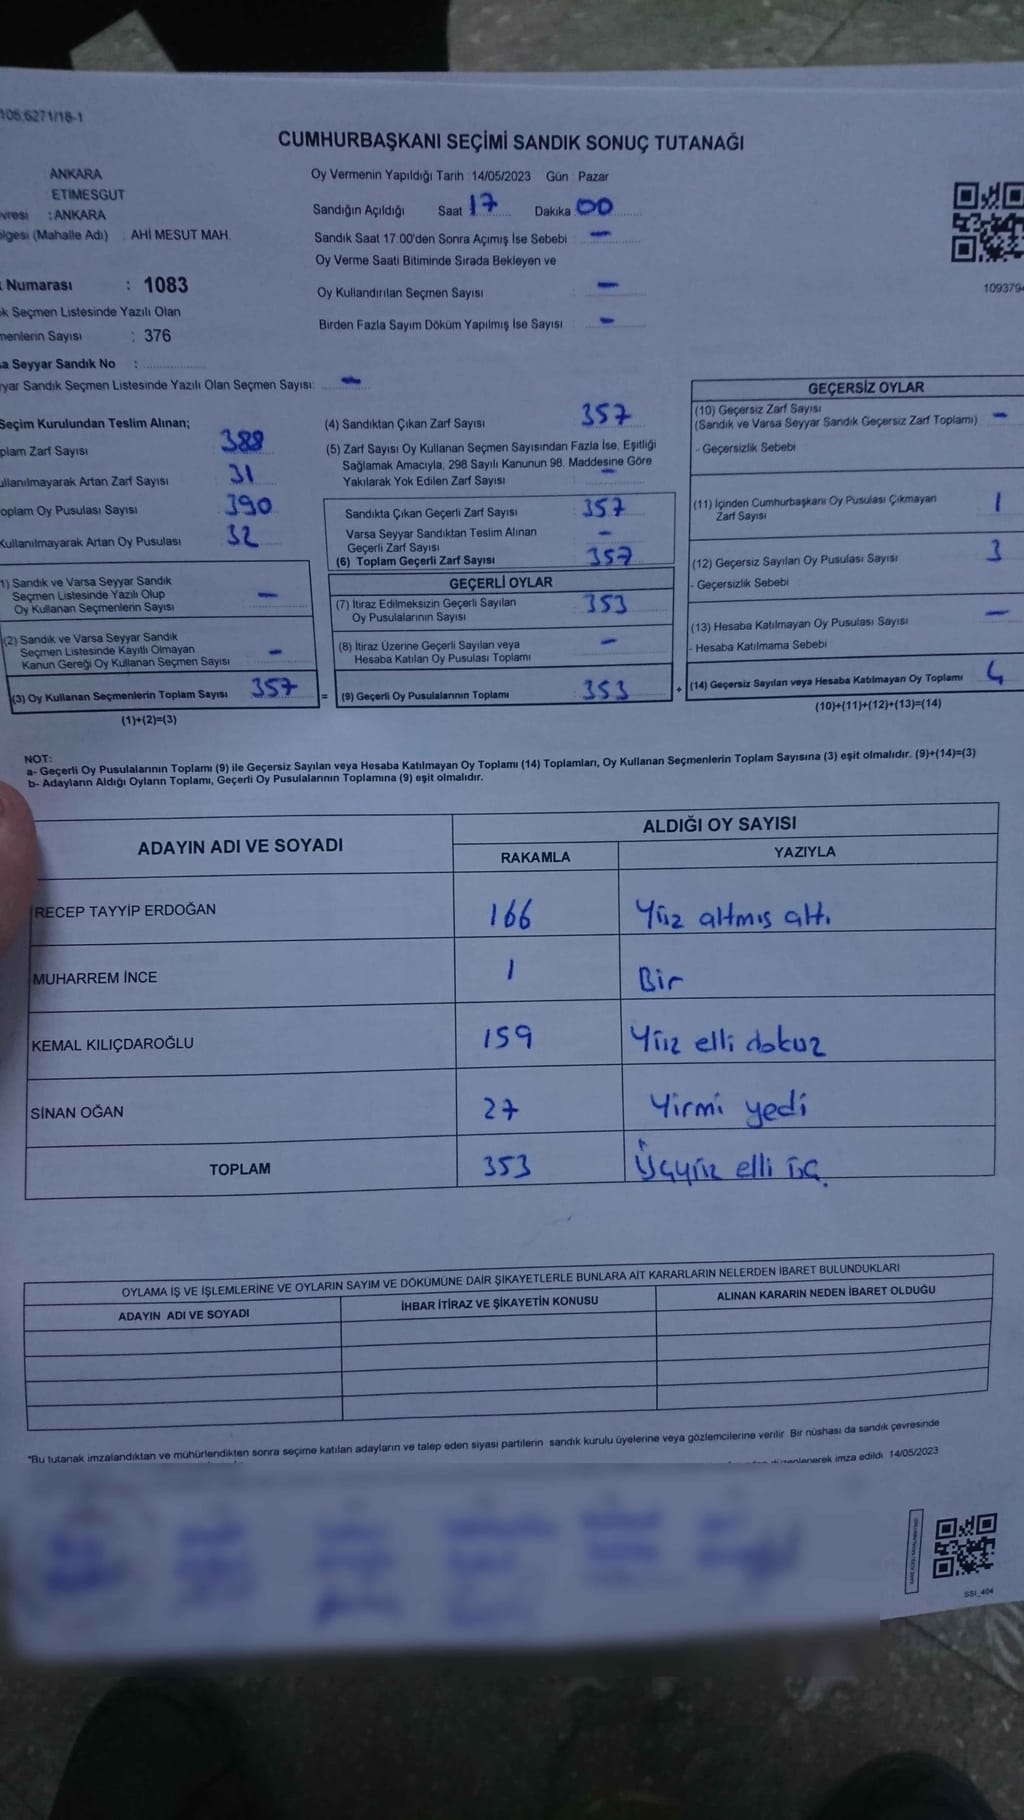 105.6271/18-1
CUMHURBAŞKANI SEÇİMİ SANDIK SONUÇ TUTANAĞI
ANKARA
ETİMESGUT
: ANKARA
(Mahalle Adı) : AHİ MESUT MAH.
Numarası : 1083
Seçmen Listesinde Yazılı Olan
Sayısı : 376
Seyyar Sandık No :
Sandık Seçmen Listesinde Yazılı Olan Seçmen Sayısı: -
Oy Vermenin Yapıldığı Tarih 14/05/2023 Gün Pazar
Sandığın Açıldığı Saat 17 Dakika 00
Sandık Saat 17:00'den Sonra Açımış İse Sebebi -
Oy Verme Saati Bitiminde Sırada Bekleyen ve
Oy Kullandırılan Seçmen Sayısı : -
Birden Fazla Sayım Döküm Yapılmış İse Sayısı : -
109379
Seçim Kurulundan Teslim Alınan;
Zarf Sayısı 388
Artan Zarf Sayısı 31
Oy Pusulası Sayısı 390
Kullanılmayarak Artan Oy Pusulası 32
1) Sandık ve Varsa Seyyar Sandık
Seçmen Listesinde Yazılı Olup
Oy Kullanan Seçmenlerin Sayısı -
(2) Sandık ve Varsa Seyyar Sandık
Seçmen Listesinde Kayıtlı Olmayan
Kanun Gereği Oy Kullanan Seçmen Sayısı -
(3) Oy Kullanan Seçmenlerin Toplam Sayısı 357
(1)+(2)=(3)
(4) Sandıktan Çıkan Zarf Sayısı 357
(5) Zarf Sayısı Oy Kullanan Seçmen Sayısından Fazla İse, Eşitliği
Sağlamak Amacıyla; 298 Sayılı Kanunun 98. Maddesine Göre
Yakılarak Yok Edilen Zarf Sayısı -
Sandıkta Çıkan Geçerli Zarf Sayısı 357
Varsa Seyyar Sandıktan Teslim Alınan
Geçerli Zarf Sayısı -
(6) Toplam Geçerli Zarf Sayısı 357
GEÇERLİ OYLAR
(7) İtiraz Edilmeksizin Geçerli Sayılan
Oy Pusulalarının Sayısı 353
(8) İtiraz Üzerine Geçerli Sayılan veya
Hesaba Katılan Oy Pusulası Toplamı -
= (9) Geçerli Oy Pusulalarının Toplamı 353
GEÇERSİZ OYLAR
(10) Geçersiz Zarf Sayısı
(Sandık ve Varsa Seyyar Sandık Geçersiz Zarf Toplamı) -
- Geçersizlik Sebebi
(11) İçinden Cumhurbaşkanı Oy Pusulası Çıkmayan
Zarf Sayısı 1
(12) Geçersiz Sayılan Oy Pusulası Sayısı 3
- Geçersizlik Sebebi
(13) Hesaba Katılmayan Oy Pusulası Sayısı -
- Hesaba Katılmama Sebebi
+ (14) Geçersiz Sayılan veya Hesaba Katılmayan Oy Toplamı 4
(10)+(11)+(12)+(13)=(14)
NOT:
a- Geçerli Oy Pusulalarının Toplamı (9) ile Geçersiz Sayılan veya Hesaba Katılmayan Oy Toplamı (14) Toplamları, Oy Kullanan Seçmenlerin Toplam Sayısına (3) eşit olmalıdır. (9)+(14)=(3)
b- Adayların Aldığı Oyların Toplamı, Geçerli Oy Pusulalarının Toplamına (9) eşit olmalıdır.
ADAYIN ADI VE SOYADI
ALDIĞI OY SAYISI
RAKAMLA YAZIYLA
RECEP TAYYİP ERDOĞAN 166 Yüz altmış altı
MUHARREM İNCE 1 Bir
KEMAL KILIÇDAROĞLU 159 Yüz elli dokuz
SİNAN OĞAN 27 Yirmi yedi
TOPLAM 353 Üçyüz elli üç.
OYLAMA İŞ VE İŞLEMLERİNE VE OYLARIN SAYIM VE DÖKÜMÜNE DAİR ŞİKAYETLERLE BUNLARA AİT KARARLARIN NELERDEN İBARET BULUNDUKLARI
ADAYIN ADI VE SOYADI İHBAR İTİRAZ VE ŞİKAYETİN KONUSU ALINAN KARARIN NEDEN İBARET OLDUĞU
*Bu tutanak imzalandıktan ve mühürlendikten sonra seçime katılan adayların ve talep eden siyasi partilerin sandık kurulu üyelerine veya gözlemcilerine verilir. Bir nüshası da sandık çevresinde
düzenlenerek imza edildi. 14/05/2023
SSI_404